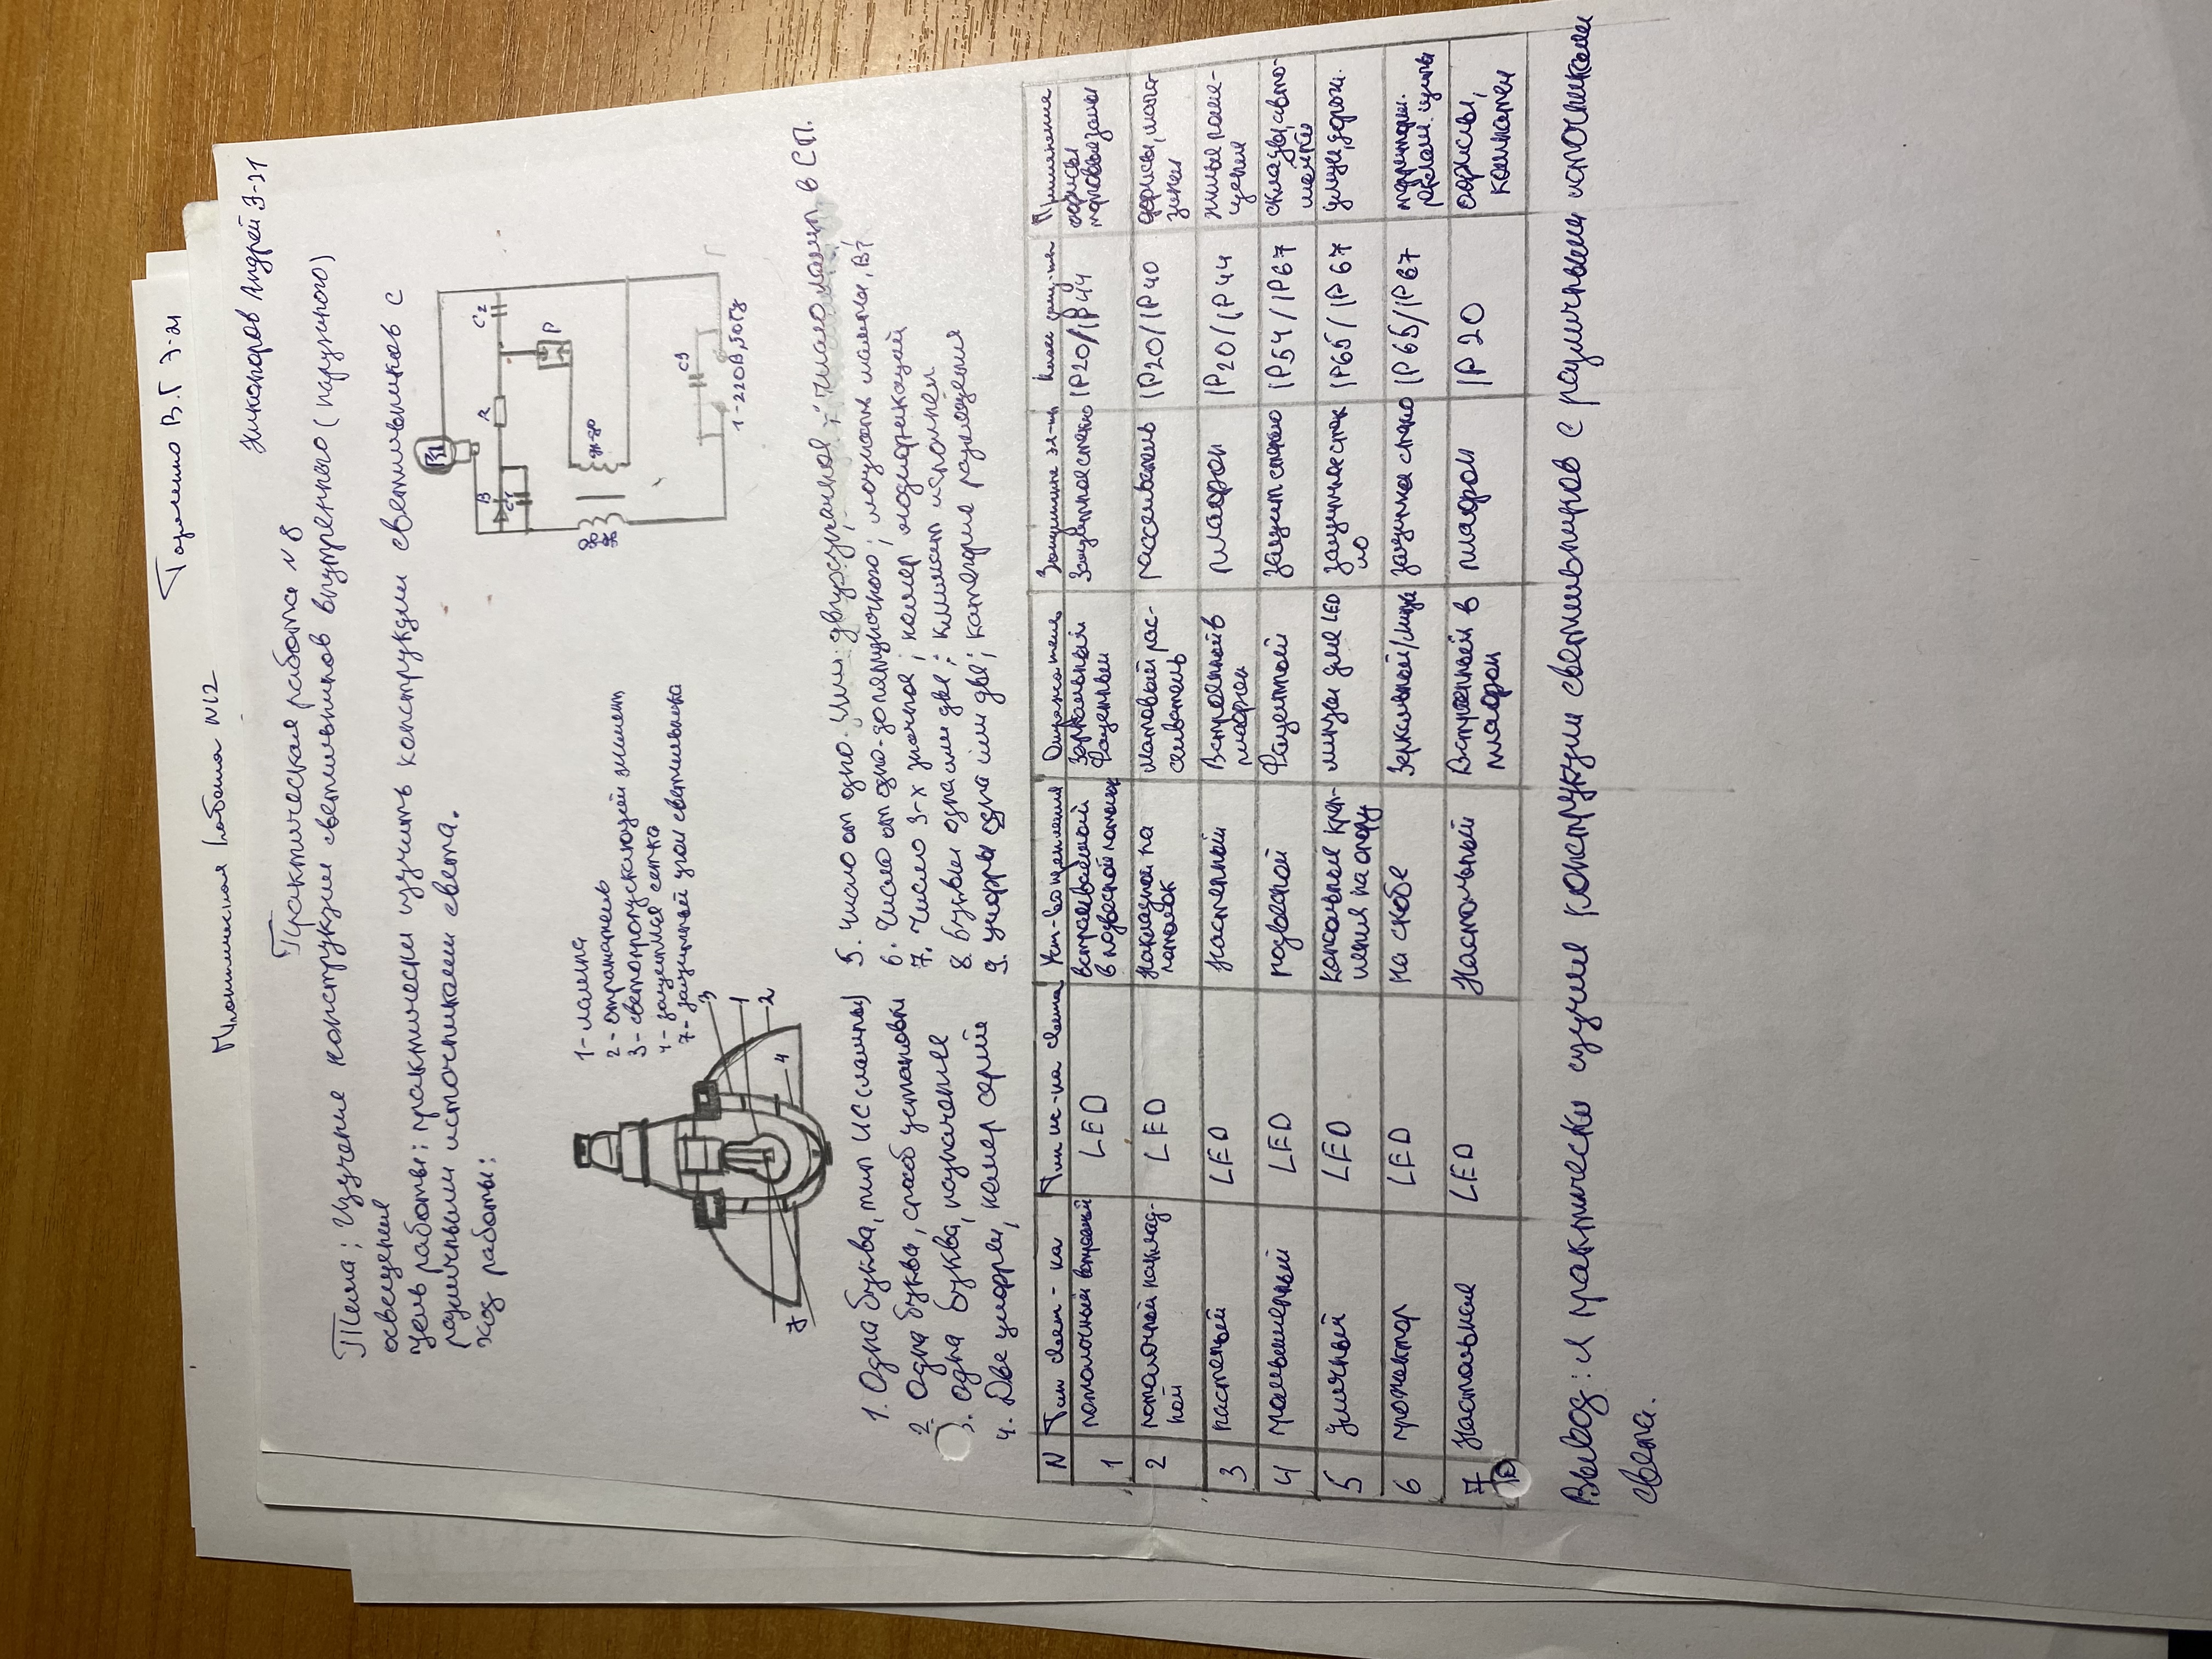 Тараленко В.Г Э-21
Практическая работа N12
Никоноров Андрей Э-21
Практическая работа N 8
Тема: Изучение конструкции светильников внутреннего (наружного)
освещения
Цель работы: практически изучить конструкции светильников с
различными источниками света.
Ход работы:
1- лампа
2- отражатель
3- светопропускающий элемент
4- защитная сетка
7- защитный угол светильника
3
1
2
4
7
В
С1
R
С2
Р
С3
1-220В, 50Гц
1. Одна буква, тип ИС (лампы)
2. Одна буква, способ установки
3. Одна буква, назначение
4. Две цифры, номер серии
5. Число от одно- или двухзначное; число ламп в СП.
6. Число от одно- до ; мощность лампы, Вт
7. Число 3-х значное; номер модификаций
8. Буквы одна или две; климат исполнен
9. Цифры одна или две; категория размещения
N Тип свет-ка Тип ис-ка света Уст-во крепления Отражатели Защитные эл-ты Класс защ-ты Применение
1 потолочный встроеный LED встраиваемый в подвесной потолок Зеркальный фацетный Защитное стекло IP20/IP44 офисы торговые залы
2 потолочной наклад-ной LED Накладной на потолок матовый рас-сеиватель рассеиватель IP20/IP40 офисы, мага-зины
3 настеный LED Настенный Встроенный в плафон плафон IP20/IP44 жилые поме-щения
4 промышленный LED подвесной Фацетной защитн стекло IP54/IP67 склады, авто-
5 Уличный LED консольные креп-ления на опору линзы для LED защитное стек-ло IP65/IP67 улицы, дороги.
6 прожектор LED на скобе Зеркальной/линза защитное стекло IP65/IP67 территории. реклам. щиты
7 Настольные LED Настольный Встроенный в плафон плафон IP20 офисы, комнаты
Вывод: я практически изучил конструкции светильников с различными источниками
света.